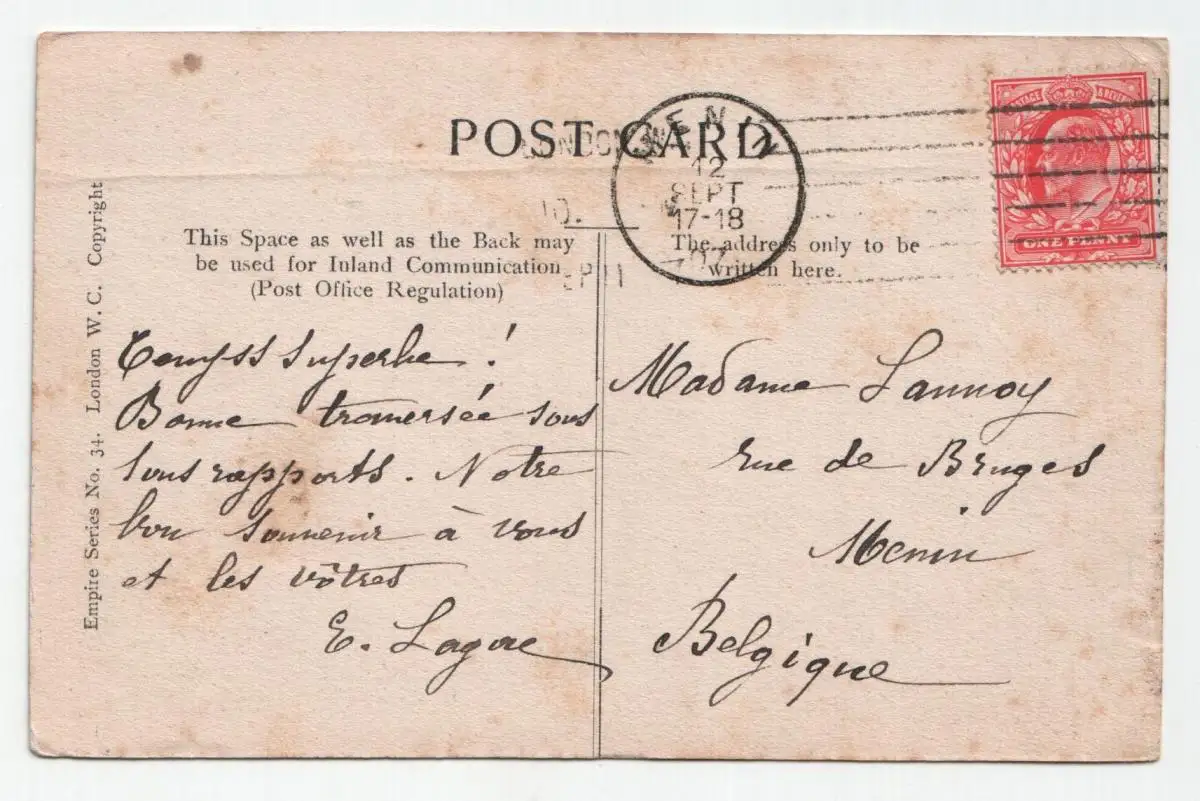 POST CARD
LONDON W
MENIN
12
SEPT
17-18
07
SEP 11
POSTAGE & REVENUE
ONE PENNY
Empire Series No. 34. London W. C. Copyright
This Space as well as the Back may
be used for Inland Communication
(Post Office Regulation)
The address only to be
written here.
Temps superbe !
Bonne traversée sous
tous rapports. Notre
bon souvenir à vous
et les vôtres
E. Lagae
Madame Lannoy
rue de Bruges
Menin
Belgique